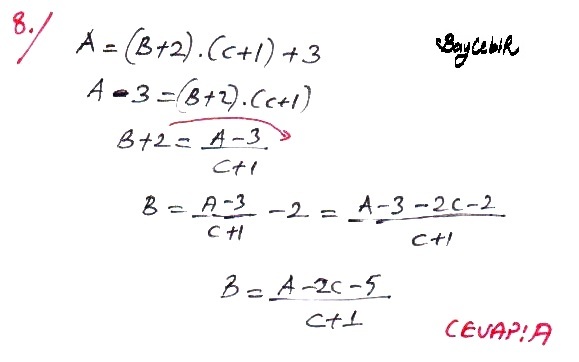 8./ A = (B+2).(C+1) + 3 BayCebir
A - 3 = (B+2).(C+1)
B+2 = A-3 / C+1
B = A-3 / C+1 - 2 = A-3-2C-2 / C+1
B = A-2C-5 / C+1
CEVAP: A